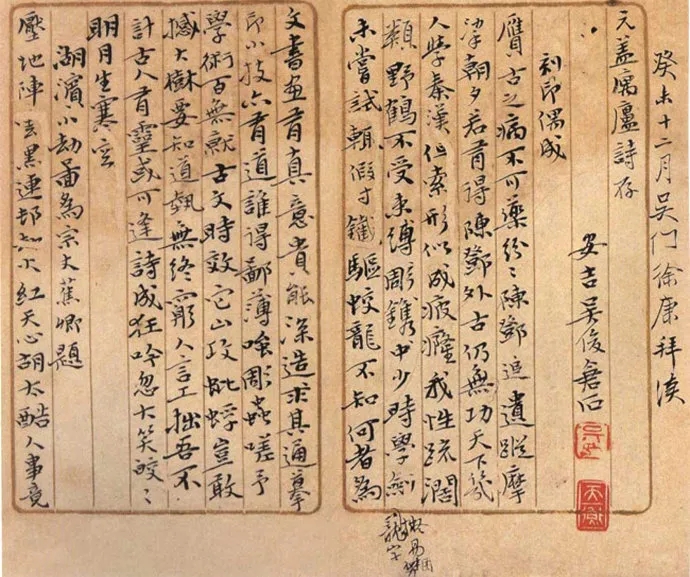 癸未十二月吳门徐康拜讀
元盖寓廬詩存
安吉吳俊倉石
刻印偶成
贗古之病不可藥紛〻陳鄧追遺蹤摩
挲朝夕若有得陳鄧外古仍無功天下幾
人學秦漢但索形似成疲癃我性疏闊
類野鶴不受束縛彫鐫中少時學劍
未嘗試輒假寸鐵驅蛟龍不知何者為
文書畫有真意貴能深造求其通摹
印小技亦有道誰得鄙薄嗤彫蟲嗟予
學術百無就古文時效它山攻蚍蜉豈敢
撼大樹要知道藝無終窮人言工拙吾不
計古人有靈或可逢詩成狂吟忽大笑皎〻
明月生寒空
湖濱小劫圖為宗丈蕉卿題
壓地陣雲黑連邨烈火紅天心胡太酷人事竟
龍字